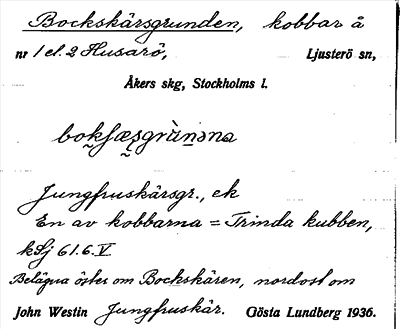 Bockskärsgrunden, kobbar å
nr 1 el. 2 Husarö, Ljusterö sn,
Åkers skg, Stockholms l.
Jungfruskärsgr., ek
En av kobbarna = Trinda kubben,
kSj 61.6.V
Belägna öster om Bockskären, nordost om
John Westin Jungfruskär. Gösta Lundberg 1936.